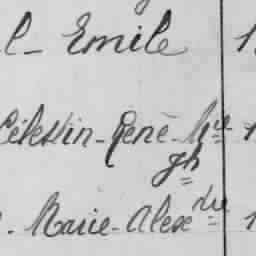 l - Emile 1
Célestin - Réné - Mie 1
Jh
- Marie - Alexdre 1